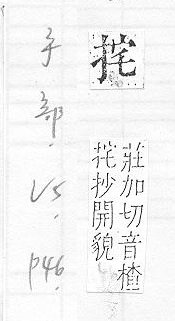 挓
莊加切音樝
挓抄開貌
手部.V5.P46.